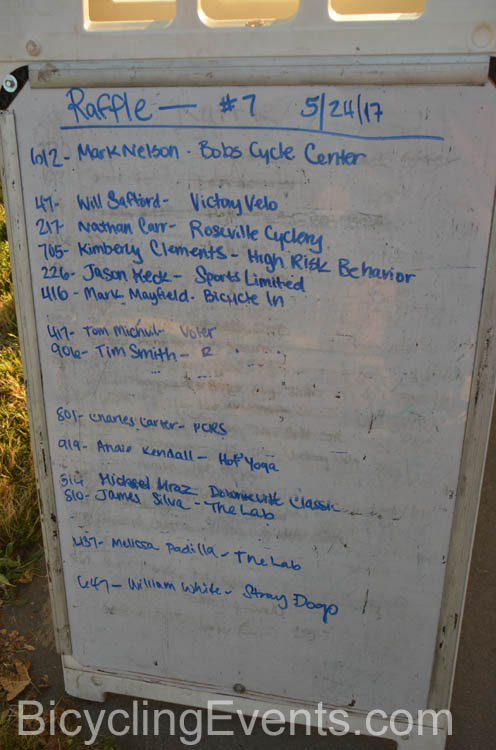 Raffle — #7 5/24/17
612- Mark Nelson - Bobs Cycle Center
47- Will Safford- Victory Velo
217- Nathan Carr- Roseville Cyclery
705- Kimberly Clements - High Risk Behavior
226- Jason Keck- Sports Limited
416- Mark Mayfield- Bicicle In
417- Tom
906- Tim Smith-
801- Charles Carter- PCRS
919- Kendall- Hot Yoga
314 Michael Mraz Classic
810- James Silva - The Lab
437- Melissa Padilla - The Lab
647- William White - Stray Dogs
BicyclingEvents.com